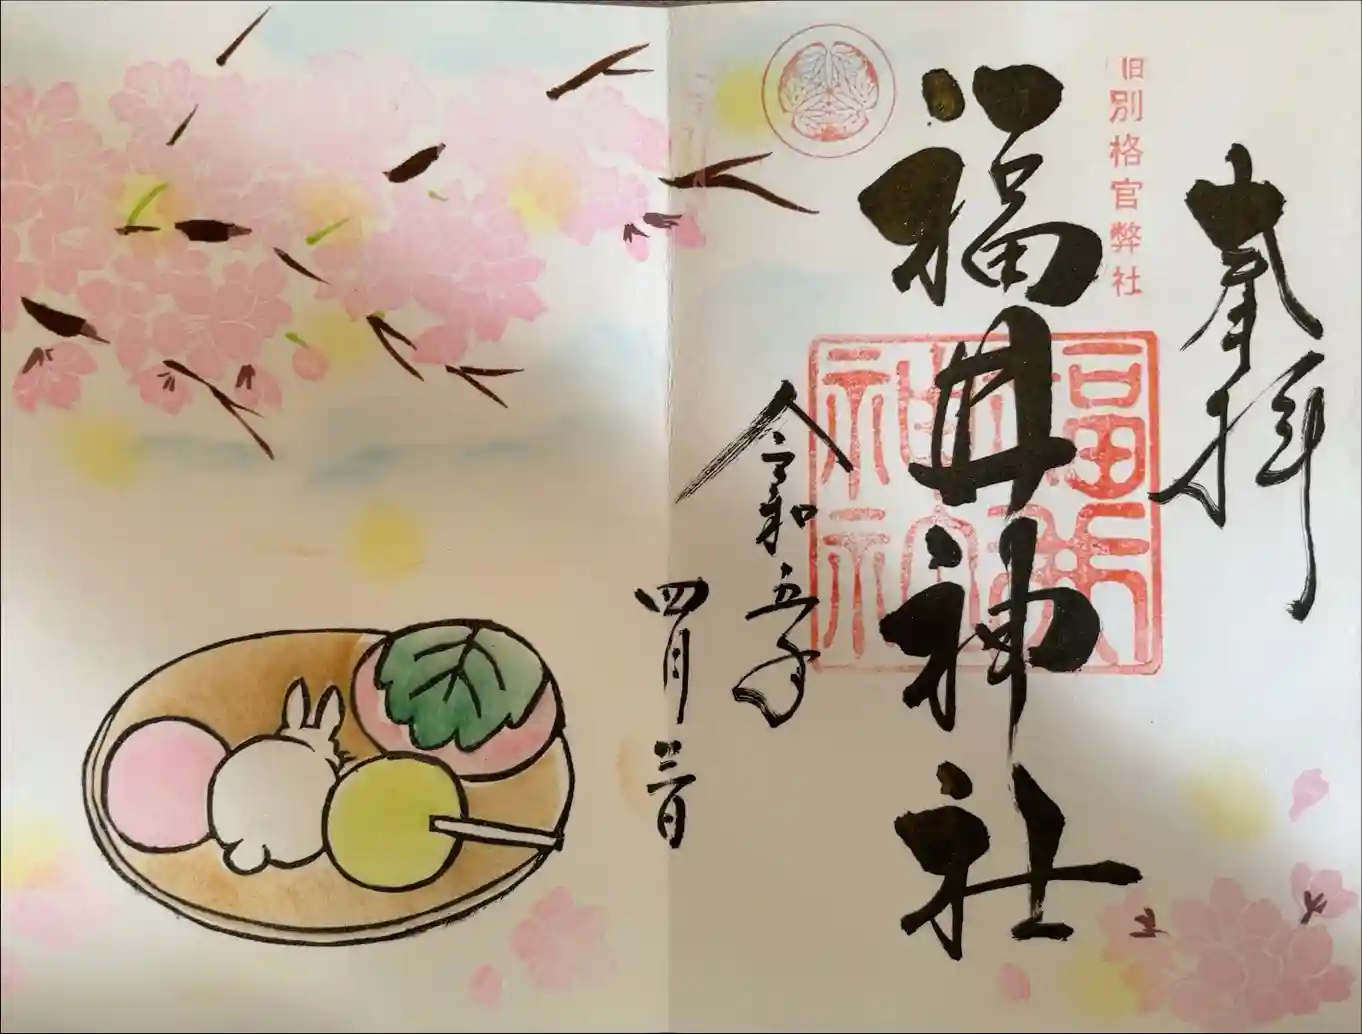 奉拝
旧別格官弊社
福井神社
福井
神社
令和五年
四月三日